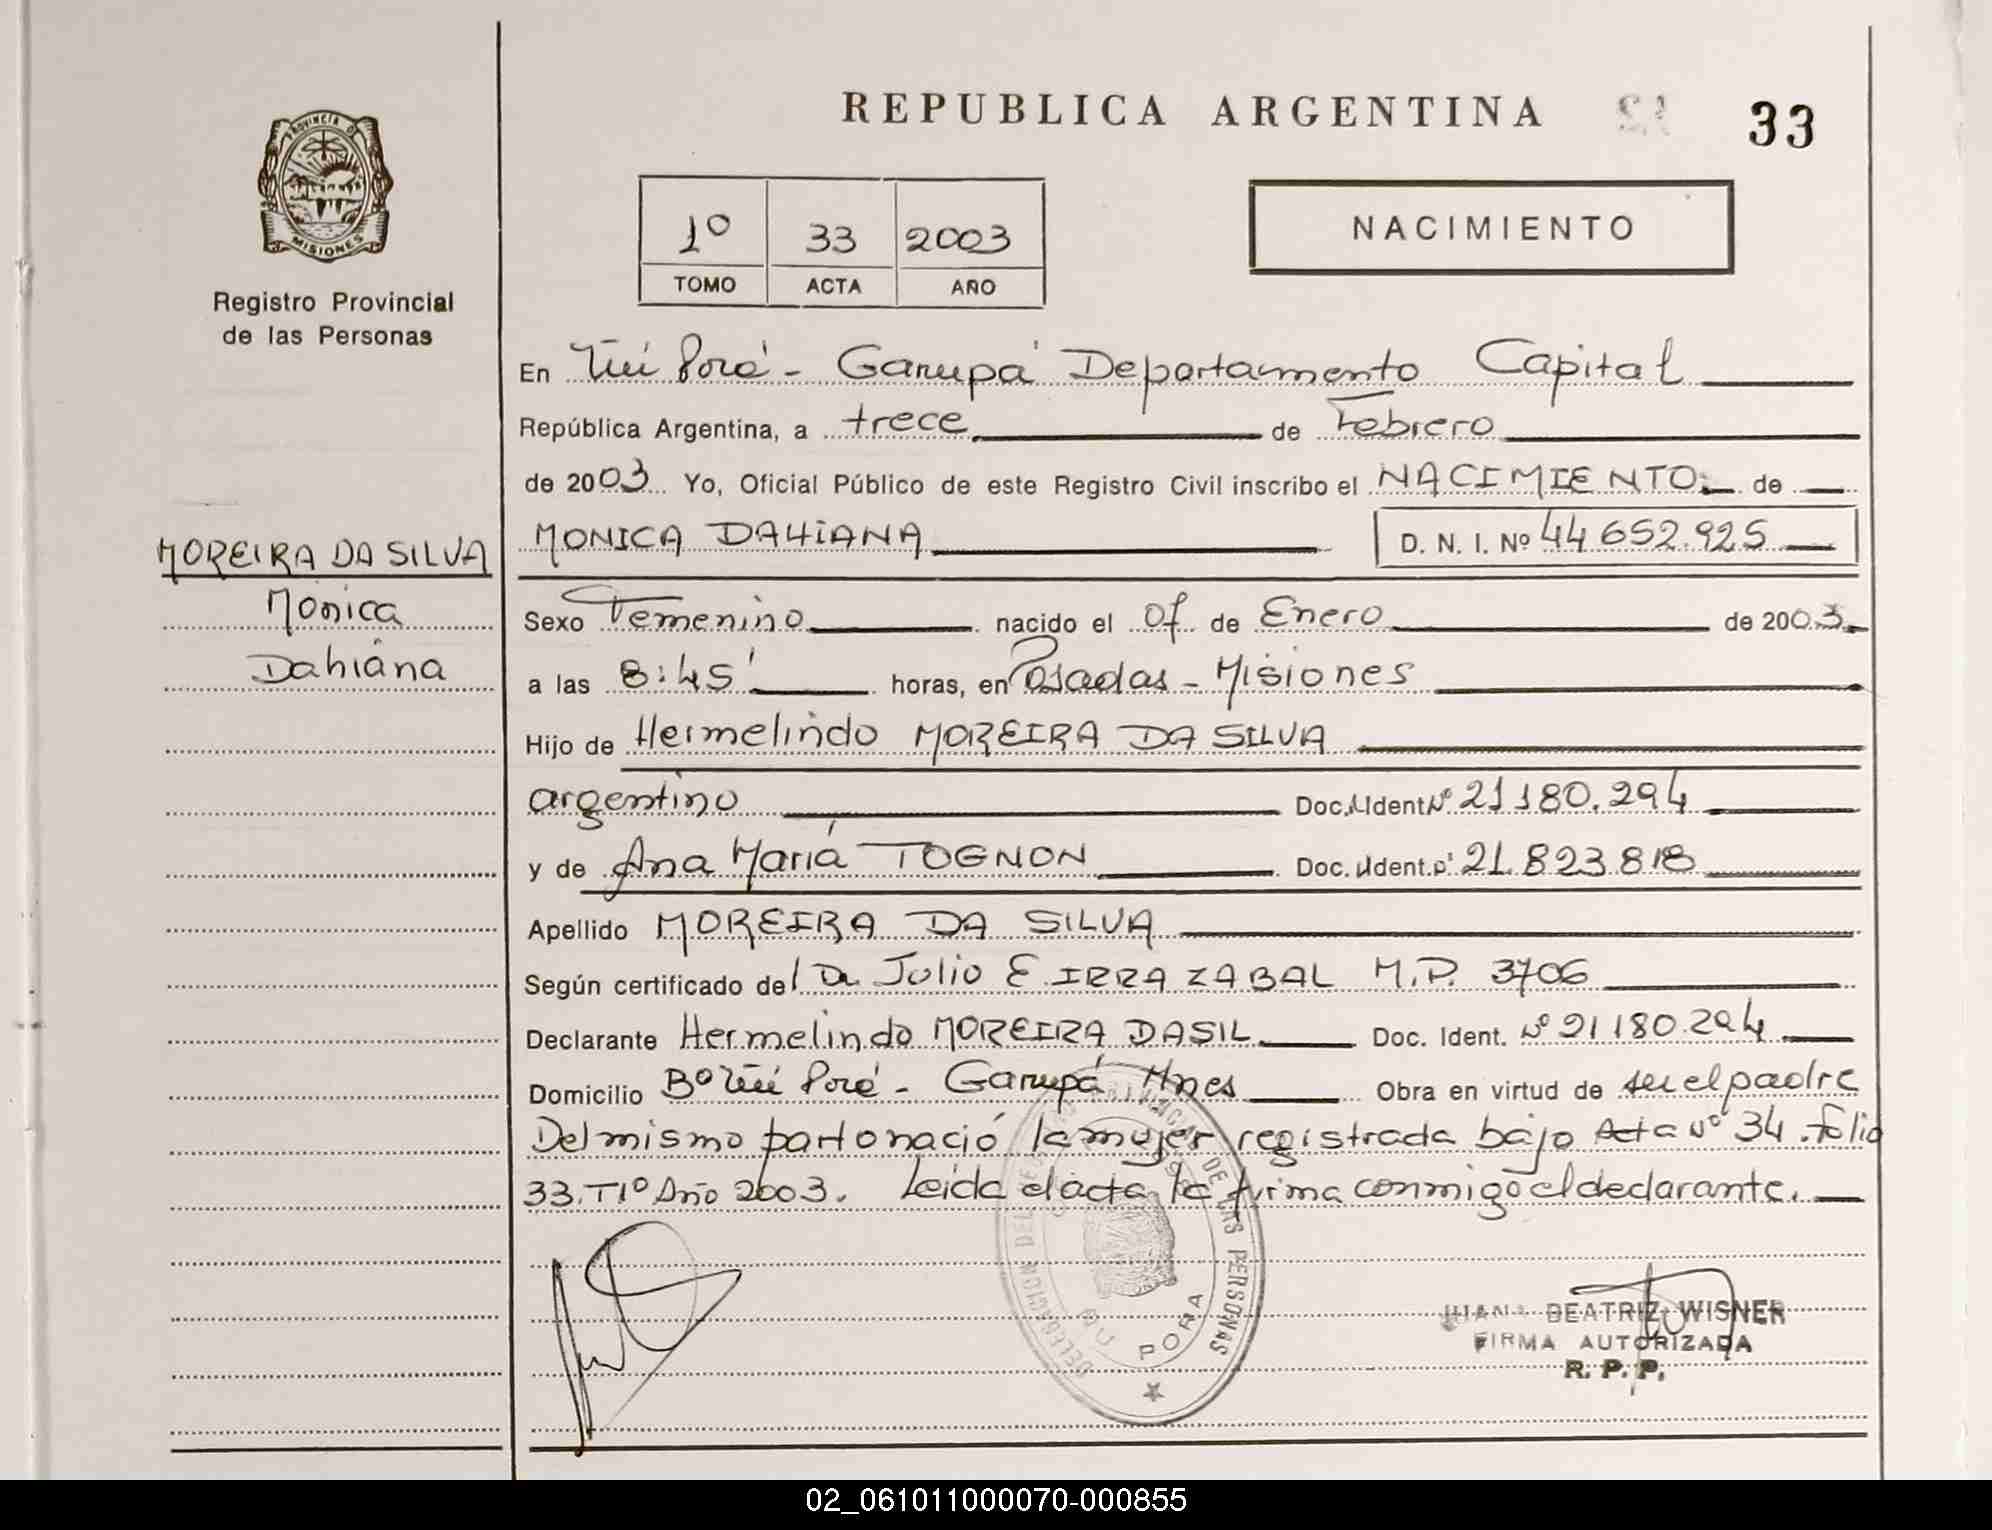 REPUBLICA ARGENTINA
33
PROVINCIA DE
MISIONES
Registro Provincial
de las Personas
1º 33 2003
TOMO ACTA AÑO
NACIMIENTO
En Ñú Porá - Garupá Departamento Capital
República Argentina, a trece de Febrero
de 2003 Yo, Oficial Público de este Registro Civil inscribo el NACIMIENTO de
MONICA DAHIANA D. N. I. Nº 44 652.925
MOREIRA DA SILVA
Monica
Dahiana
Sexo Femenino nacido el 07 de Enero de 2003
a las 8:45' horas, en Posadas - Misiones
Hijo de Hermelindo MOREIRA DA SILVA
argentino Doc. Ident Nº 21180.294
y de Ana María TOGNON Doc. Ident. Nº 21.823.818
Apellido MOREIRA DA SILVA
Según certificado del Dr Julio E IRRAZABAL M.P. 3706
Declarante Hermelindo MOREIRA DASIL Doc. Ident. Nº 21180.294
Domicilio Bº Ñú Porá - Garupá Mnes Obra en virtud de ser el padre
Del mismo parto nació la mujer registrada bajo Acta Nº 34. folio
33. T1º Año 2003. Leida el acta la firma conmigo el declarante.
DELEGACION DEL REGISTRO PROVINCIAL DE LAS PERSONAS
ÑU PORA
JUANA BEATRIZ WISNER
FIRMA AUTORIZADA
R. P. P.
02_061011000070-000855